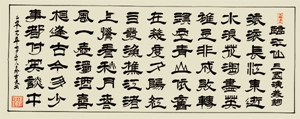 臨江仙 三國演義詞
滾滾長江東逝
水浪花淘盡英
雄是非成敗轉
頭空青山依舊
在幾度夕陽紅
白髮漁樵江渚
上慣看秋月春
風一壺濁酒喜
相逢古今多少
事都付笑談中